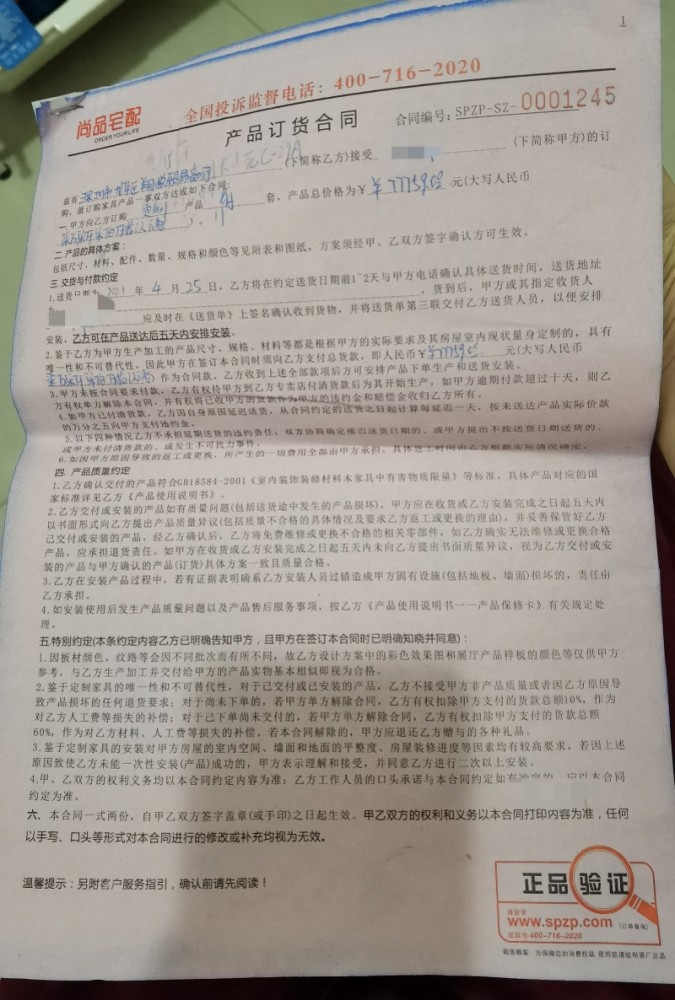 1
尚品宅配
ORDER YOUR LIFE
全国投诉监督电话：400-716-2020
产品订货合同
合同编号：SPZP-SZ-0001245
兹有 (下简称乙方)接受 (下简称甲方)的订
购，就订购家具产品一事双方达成如下协议：
一.甲方向乙方订购 定制 产品 套，产品总价格为￥￥77759.00元(大写人民币
)。
二.产品的具体方案：
包括尺寸、材料、配件、数量、规格和颜色等见附表和图纸，方案须经甲、乙双方签字确认方可生效。
三.交货与付款约定
1.送货日期为 2021 年 4 月 25 日，乙方将在约定送货日期前1~2天与甲方电话确认具体送货时间，送货地址
货到后，甲方或其指定收货人
应及时在《送货单》上签名确认收到货物，并将送货单第三联交付乙方送货人员，以便安排
安装。乙方可在产品送达后五天内安排安装。
2.鉴于乙方为甲方生产加工的产品尺寸、规格、材料等都是根据甲方的实际要求及其房屋室内现状量身定制的，具有
唯一性和不可替代性，因此甲方在签订本合同时须向乙方支付总货款，即人民币￥￥77759.00 元(大写人民币
)作为合同款。乙方收到上述全部款项后方可安排产品下单生产和送货安装。
3.甲方未按合同要求付款，乙方有权待甲方到乙方专卖店付清货款后为其开始生产，如甲方逾期付款超过十天，则乙
方有权单方解除本合同，并有权将已收甲方的货款作为甲方的违约金和赔偿金收归乙方所有。
4.如甲方已付清货款，乙方因自身原因延迟送货，从合同约定的送货之日起计算每延迟一天，按未送达产品实际价款
的万分之五向甲方支付违约金。
5.以下四种情况乙方不承担延期送货的违约责任：双方协商确定推迟送货日期的、或甲方提出不按送货日期送货的、
或甲方未付清货款的、或发生不可抗力事件。
6.如因甲方原因导致的返工或更换，所产生的一切费用全部由甲方承担。具体返工时间由乙方根据实际情况确定。
四.产品质量约定
1.乙方确认交付的产品符合GB18584-2001《室内装饰装修材料木家具中有害物质限量》等标准，具体产品对应的国
家标准详见乙方《产品使用说明书》。
2.乙方交付或安装的产品如有质量问题(包括送货途中发生的产品损坏)，甲方应在收货或乙方安装完成之日起五天内
以书面形式向乙方提出产品质量异议(包括质量不合格的具体情况及要求乙方返工或更换的理由)，并妥善保管好乙方
已交付或安装的产品，经乙方确认后，乙方将免费维修或更换不合格的相关零部件，如乙方确实无法维修或更换合格
产品，应承担退货责任。如甲方在收货或乙方安装完成之日起五天内未向乙方提出书面质量异议，视为乙方交付或安
装的产品与甲方确认的产品(订货)具体方案一致且质量合格。
3.乙方在安装产品过程中，若有证据表明确系乙方安装人员过错造成甲方固有设施(包括地板、墙面)损坏的，责任由
乙方承担。
4.如安装使用后发生产品质量问题以及产品售后服务事项，按乙方《产品使用说明书一一产品保修卡》有关规定处
理。
五.特别约定(本条约定内容乙方已明确告知甲方，且甲方在签订本合同时已明确知晓并同意)：
1.因板材颜色、纹路等会因不同批次而有所不同，故乙方设计方案中的彩色效果图和展厅产品样板的颜色等仅供甲方
参考，与乙方生产加工并交付给甲方的产品实物基本相似即视为合格。
2.鉴于定制家具的唯一性和不可替代性，对于已交付或已安装的产品，乙方不接受甲方非产品质量或者因乙方原因导
致产品损坏的任何退货要求；对于尚未下单的，若甲方单方解除合同，乙方有权扣除甲方支付的货款总额10%，作为
对乙方人工费等损失的补偿；对于已下单尚未交付的，若甲方单方解除合同，乙方有权扣除甲方支付的货款总额
60%，作为对乙方材料、人工费等损失的补偿。若本合同解除的，甲方应退还乙方赠与的各种礼品。
3.鉴于定制家具的安装对甲方房屋的室内空间、墙面和地面的平整度、房屋装修进度等因素均有较高要求，若因上述
原因致使乙方未能一次性安装(产品)成功的，甲方表示理解和接受，并同意乙方进行二次以上安装。
4.甲、乙双方的权利义务均以本合同约定内容为准；乙方工作人员的口头承诺与本合同约定如有冲突的，应以本合同
约定为准。
六．本合同一式两份，自甲乙双方签字盖章(或手印)之日起生效。甲乙双方的权利和义务以本合同打印内容为准，任何
以手写、口头等形式对本合同进行的修改或补充均视为无效。
温馨提示：另附客户服务指引，确认前请先阅读！
正品验证
请登录
www.spzp.com [订单查询]
或致电 400-716-2020
敬告顾客：为保障您的消费权益，使用前请验明原厂正品